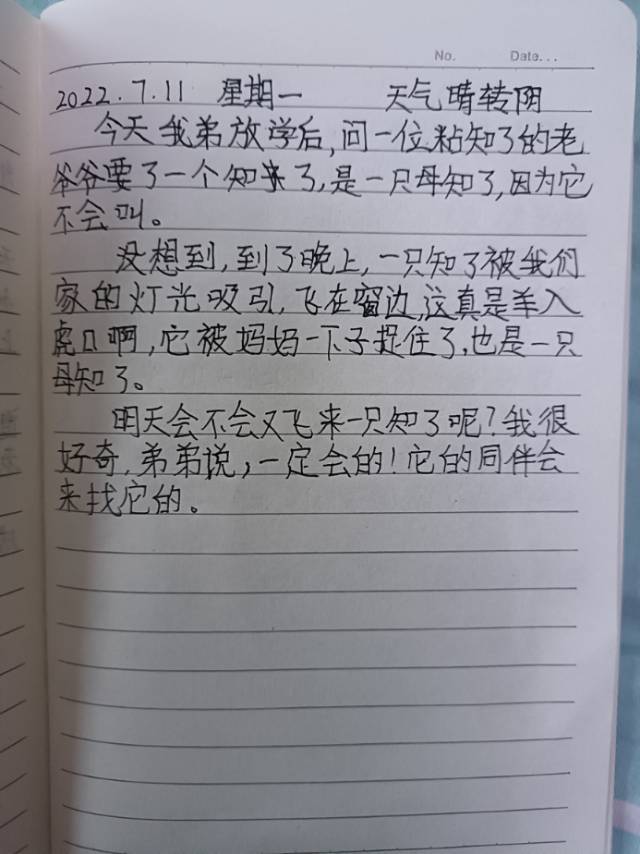 No. Date...
2022.7.11 星期一 天气晴转阴
今天我弟放学后,问一位粘知了的老
爷爷要了一个知了,是一只母知了,因为它
不会叫。
没想到,到了晚上,一只知了被我们
家的灯光吸引,飞在窗边,这真是羊入
虎口啊,它被妈妈一下子捉住了,也是一只
母知了。
明天会不会又飞来一只知了呢?我很
好奇,弟弟说,一定会的!它的同伴会
来找它的。